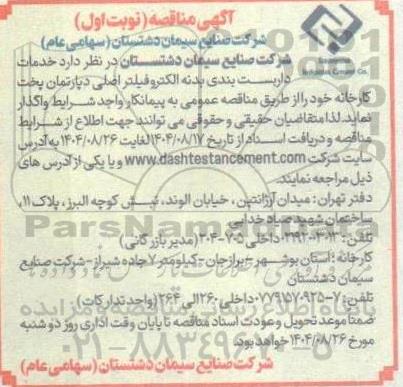 آگهی مناقصه (نوبت اول)
شرکت صنایع سیمان دشتستان (سهامی عام)
شرکت صنایع سیمان دشتستان در نظر دارد خدمات
داربست بندی بدنه الکتروفیلتر اصلی دپارتمان پخت
کارخانه خود را از طریق مناقصه عمومی به پیمانکار واجد شرایط واگذار
نماید. لذا متقاضیان حقیقی و حقوقی می توانند جهت اطلاع از شرایط
مناقصه و دریافت اسناد از تاریخ ۱۴۰۴/۰۸/۱۷ لغایت ۱۴۰۴/۰۸/۲۶ به آدرس
سایت شرکت www.dashtestancement.com و یا یکی از آدرس های
ذیل مراجعه نمایند.
دفتر تهران: میدان آرژانتین، خیابان الوند، نبش کوچه البرز، پلاک ۱۱،
ساختمان شهید صیاد خدایی
تلفن: داخلی ۷۰۵-۳۰۴ (مدیر بازرگانی)
کارخانه: استان بوشهر - برازجان - کیلومتر ۷ جاده شیراز - شرکت صنایع
سیمان دشتستان
تلفن: ۷-۷۷۹۱۵۷۰۹۲۵ داخلی ۲۶۰ الی ۲۶۴ (واحد تدارکات)
ضمنا موعد تحویل و عودت اسناد مناقصه تا پایان وقت اداری روز دوشنبه
مورخ ۱۴۰۴/۰۸/۲۶ خواهد بود.
شرکت صنایع سیمان دشتستان (سهامی عام)
ParsNamadData
۰۲۱-۸۸۳۴۹۶۷۰-۵